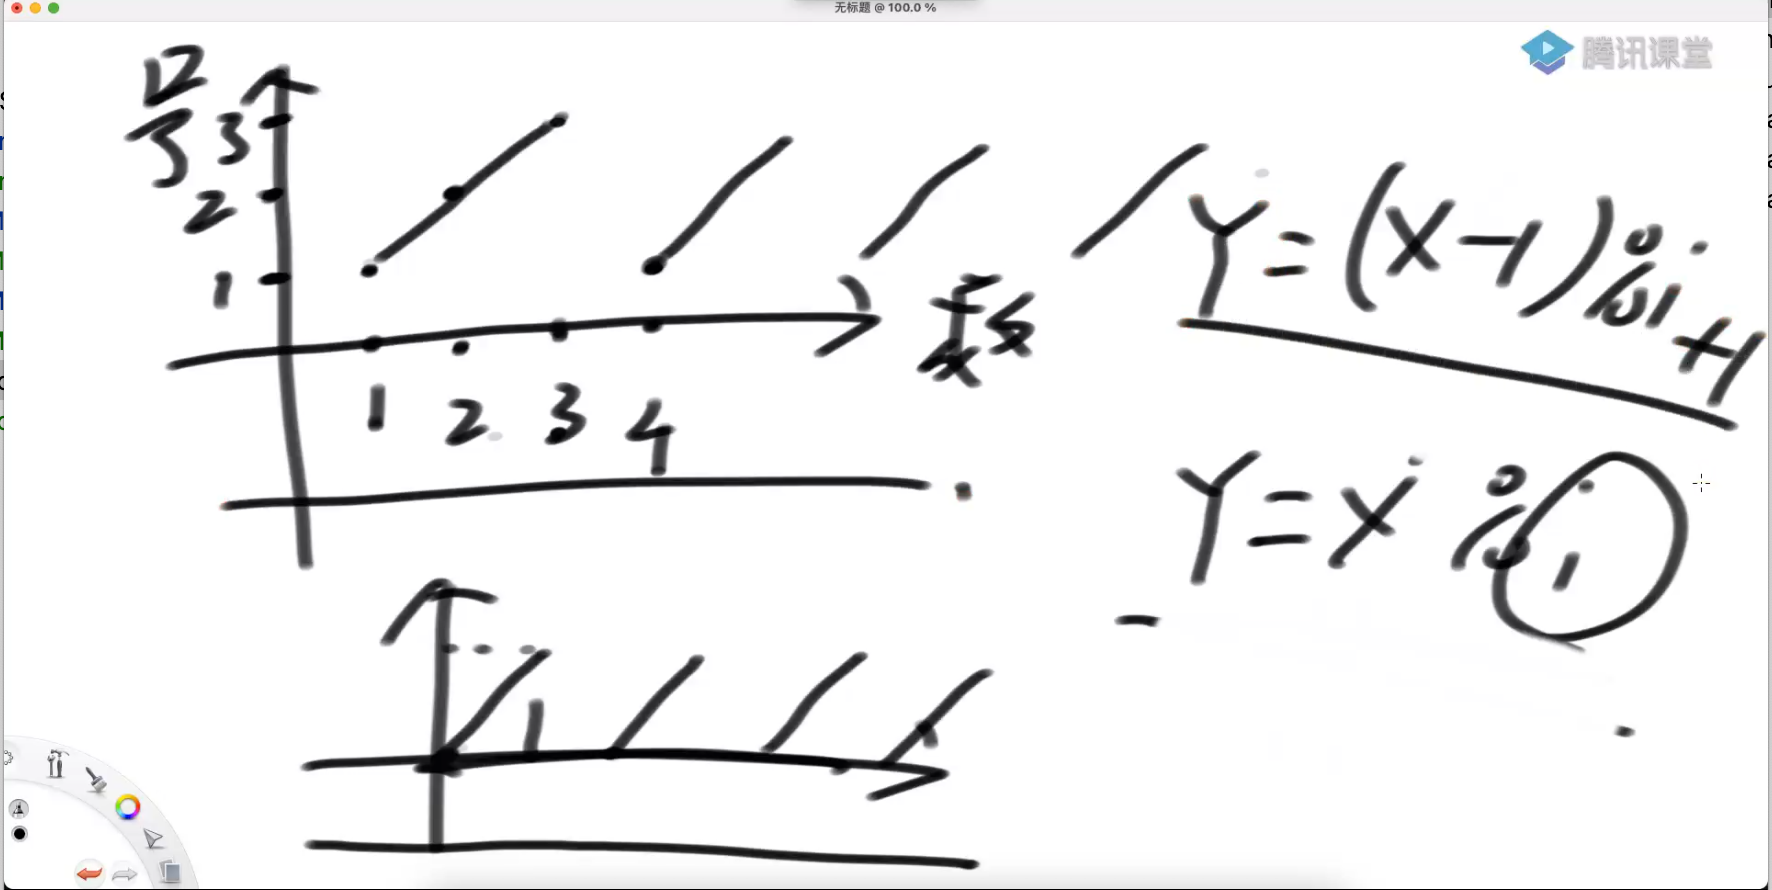 无标题 @ 100.0 %
腾讯课堂
号
3
2
1
1 2 3 4
Y=(X-1)%i+1
Y=X%i